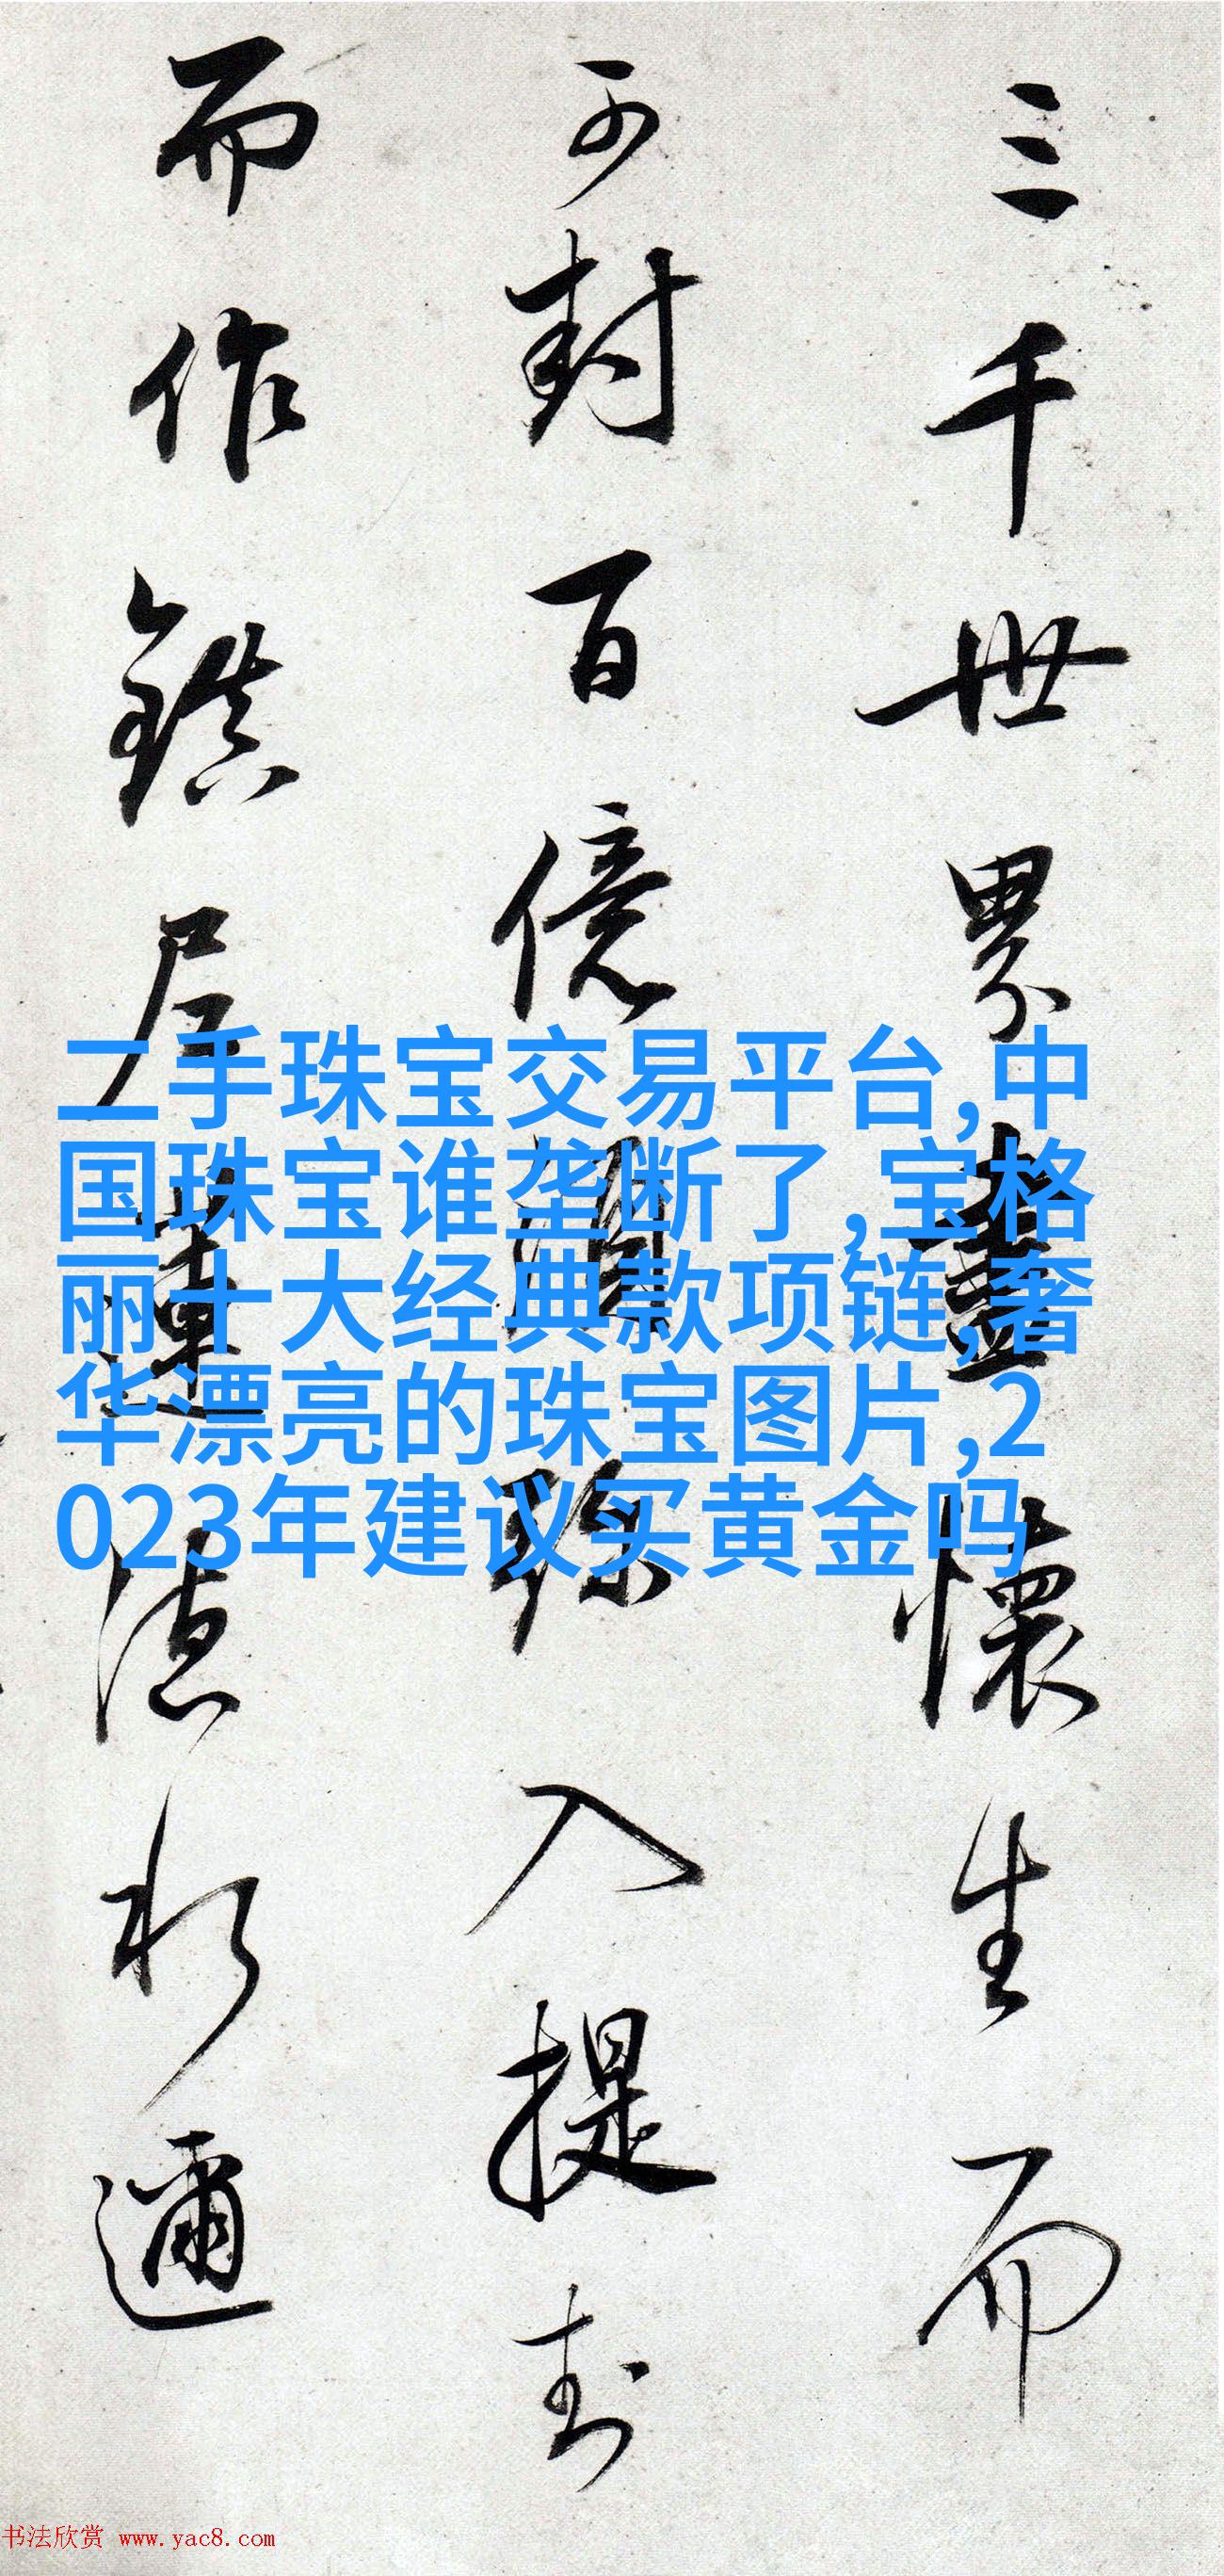 三千世界盡懷生而
不封百億
入提封
而作鎮居蓮
邇
二手珠宝交易平台,中
国珠宝谁垄断了,宝格
丽十大经典款项链,奢
华漂亮的珠宝图片,2
023年建议买黄金吗
书法欣赏 www.yac8.com